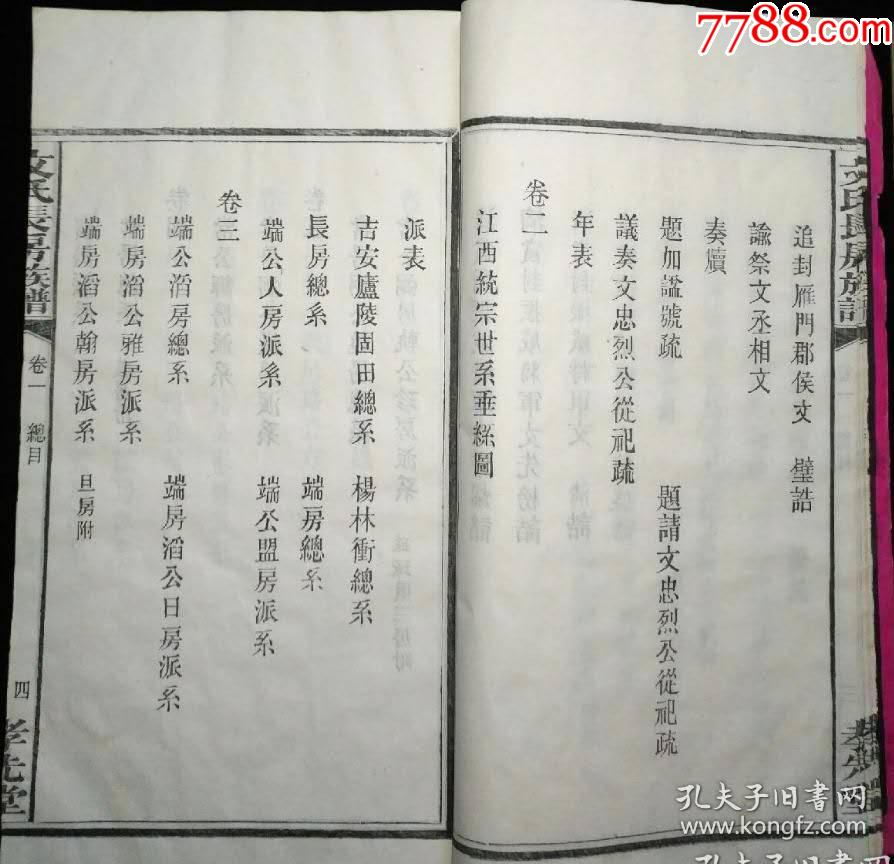 7788.com
追封雁門郡侯文 璧誥
諭祭文丞相文
奏牘
題加諡號疏 題請文忠烈公從祀疏
議奏文忠烈公從祀疏
年表
卷二
江西統宗世系垂絲圖
派表
吉安廬陵固田總系 楊林衝總系
長房總系 端房總系
端公人房派系 端公盟房派系
卷三
端公滔房總系 端房滔公日房派系
端房滔公雅房派系
端房滔公翰房派系 旦房附
文氏長房族譜
卷一 總目
四
孝先堂
孔夫子旧書网
www.kongfz.com
孔夫子旧書网